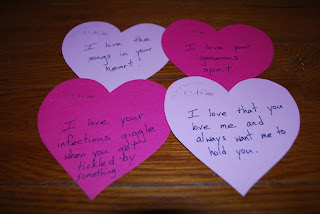 I love the
songs in your
heart!
I love your
generous
spirit
I love your
infectious giggle
when you get
tickled by
something.
I love that you
love me and
always want me to
hold you.